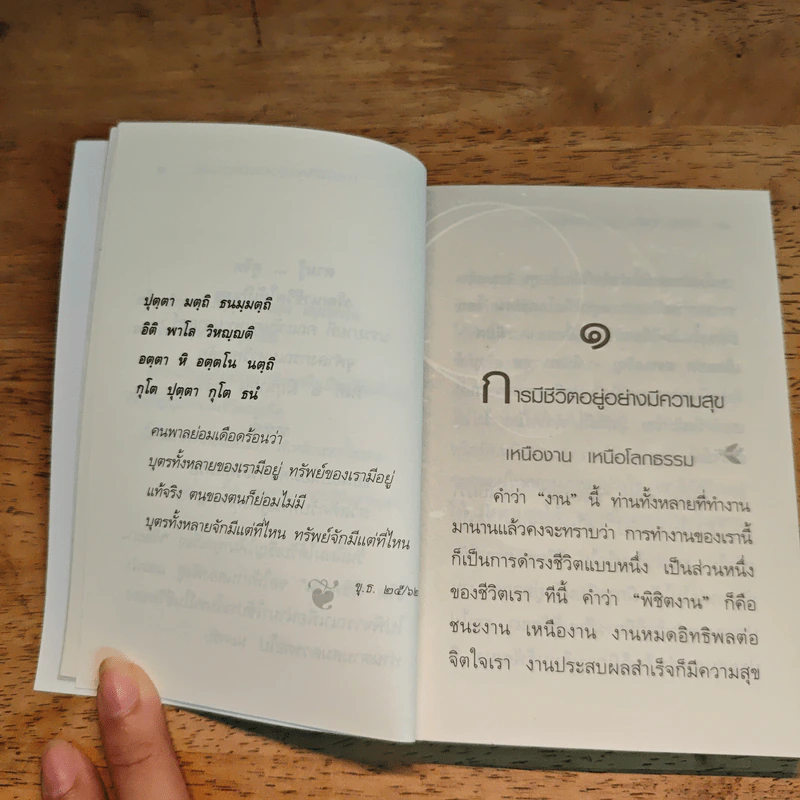 ปุตฺตา มตฺถิ ธนมฺมตฺถิ
อิติ พาโล วิหญฺญติ
อตฺตา หิ อตฺตโน นตฺถิ
กุโต ปุตฺตา กุโต ธนํ
คนพาลย่อมเดือดร้อนว่า
บุตรทั้งหลายของเรามีอยู่ ทรัพย์ของเรามีอยู่
แท้จริง ตนของตนก็ย่อมไม่มี
บุตรทั้งหลายจักมีแต่ที่ไหน ทรัพย์จักมีแต่ที่ไหน
ขุ.ธ. ๒๕/๖๒
๑
การมีชีวิตอยู่อย่างมีความสุข
เหนืองาน เหนือโลกธรรม
คำว่า “งาน” นี้ ท่านทั้งหลายที่ทำงาน
มานานแล้วคงจะทราบว่า การทำงานของเรานี้
ก็เป็นการดำรงชีวิตแบบหนึ่ง เป็นส่วนหนึ่ง
ของชีวิตเรา ทีนี้ คำว่า “พิชิตงาน” ก็คือ
ชนะงาน เหนืองาน งานหมดอิทธิพลต่อ
จิตใจเรา งานประสบผลสำเร็จก็มีความสุข